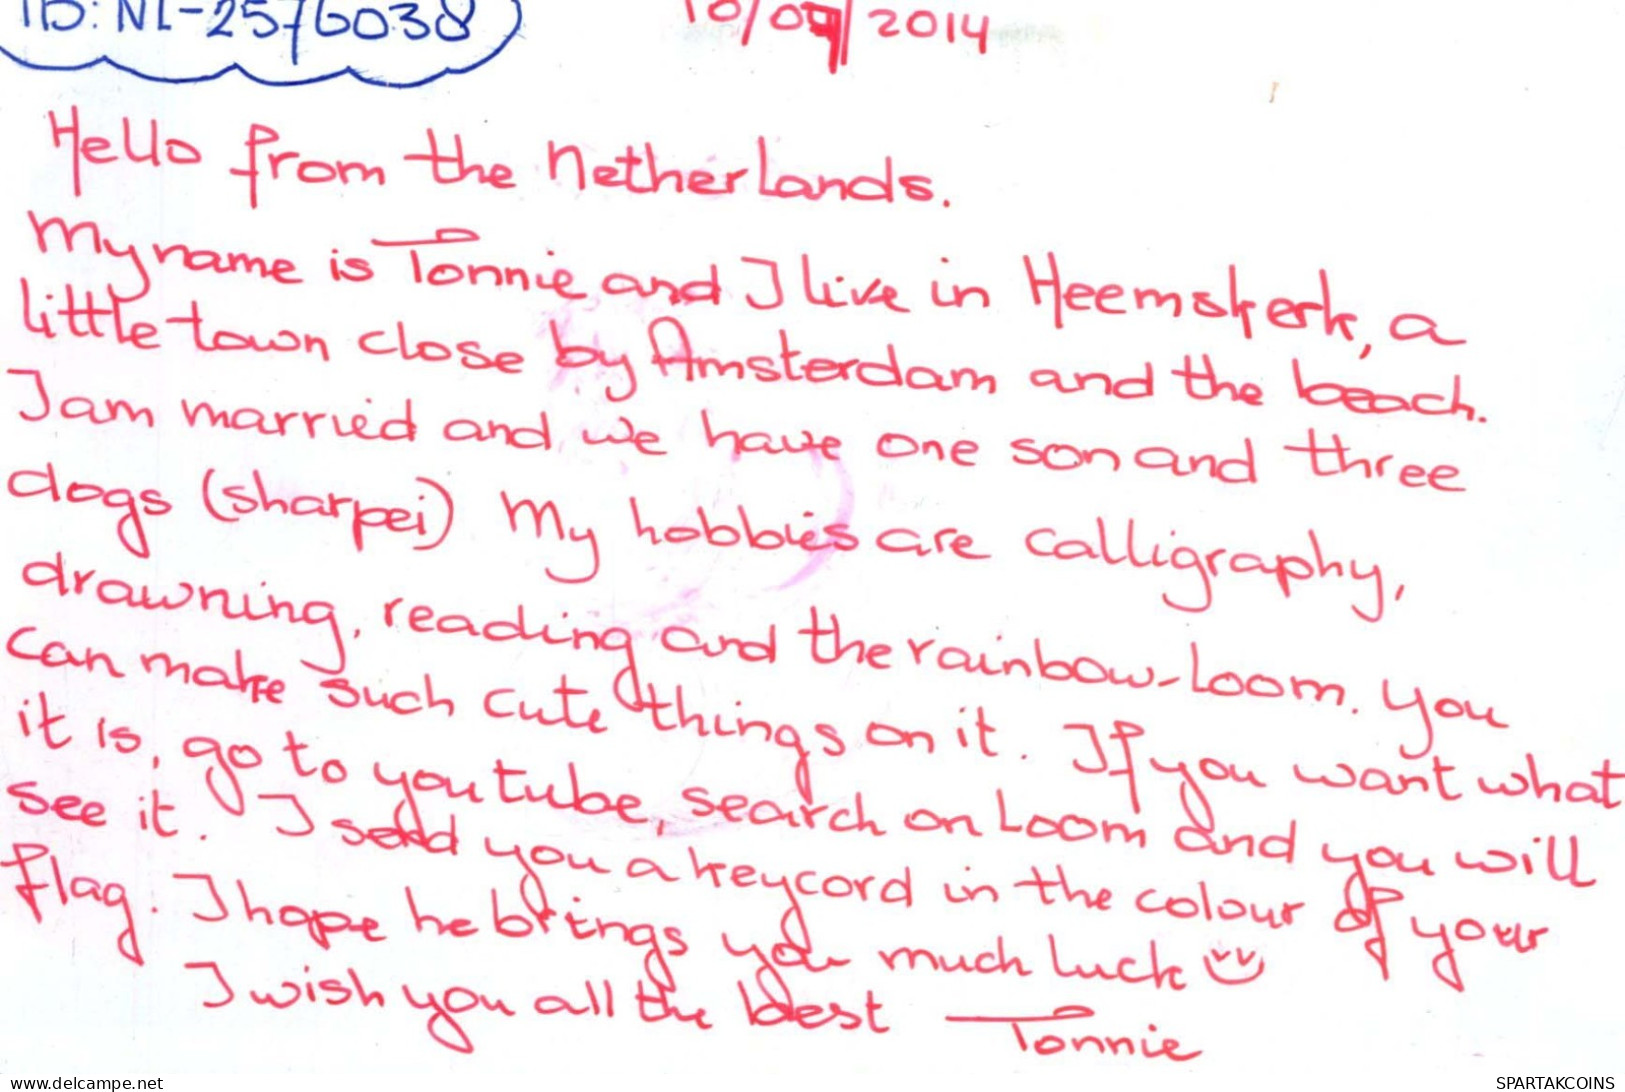 ID: NL-2576038
10/09/2014
Hello from the Netherlands.
My name is Tonnie and I live in Heemskerk, a
little town close by Amsterdam and the beach.
I am married and we have one son and three
dogs (sharpei) My hobbies are calligraphy,
drawning, reading and the rainbow-loom. You
can make such cute things on it. If you want what
it is, go to youtube, search on Loom and you will
see it. I send you a keycord in the colour of your
flag. I hope he brings you much luck
I wish you all the best Tonnie
www.delcampe.net
SPARTAKCOINS